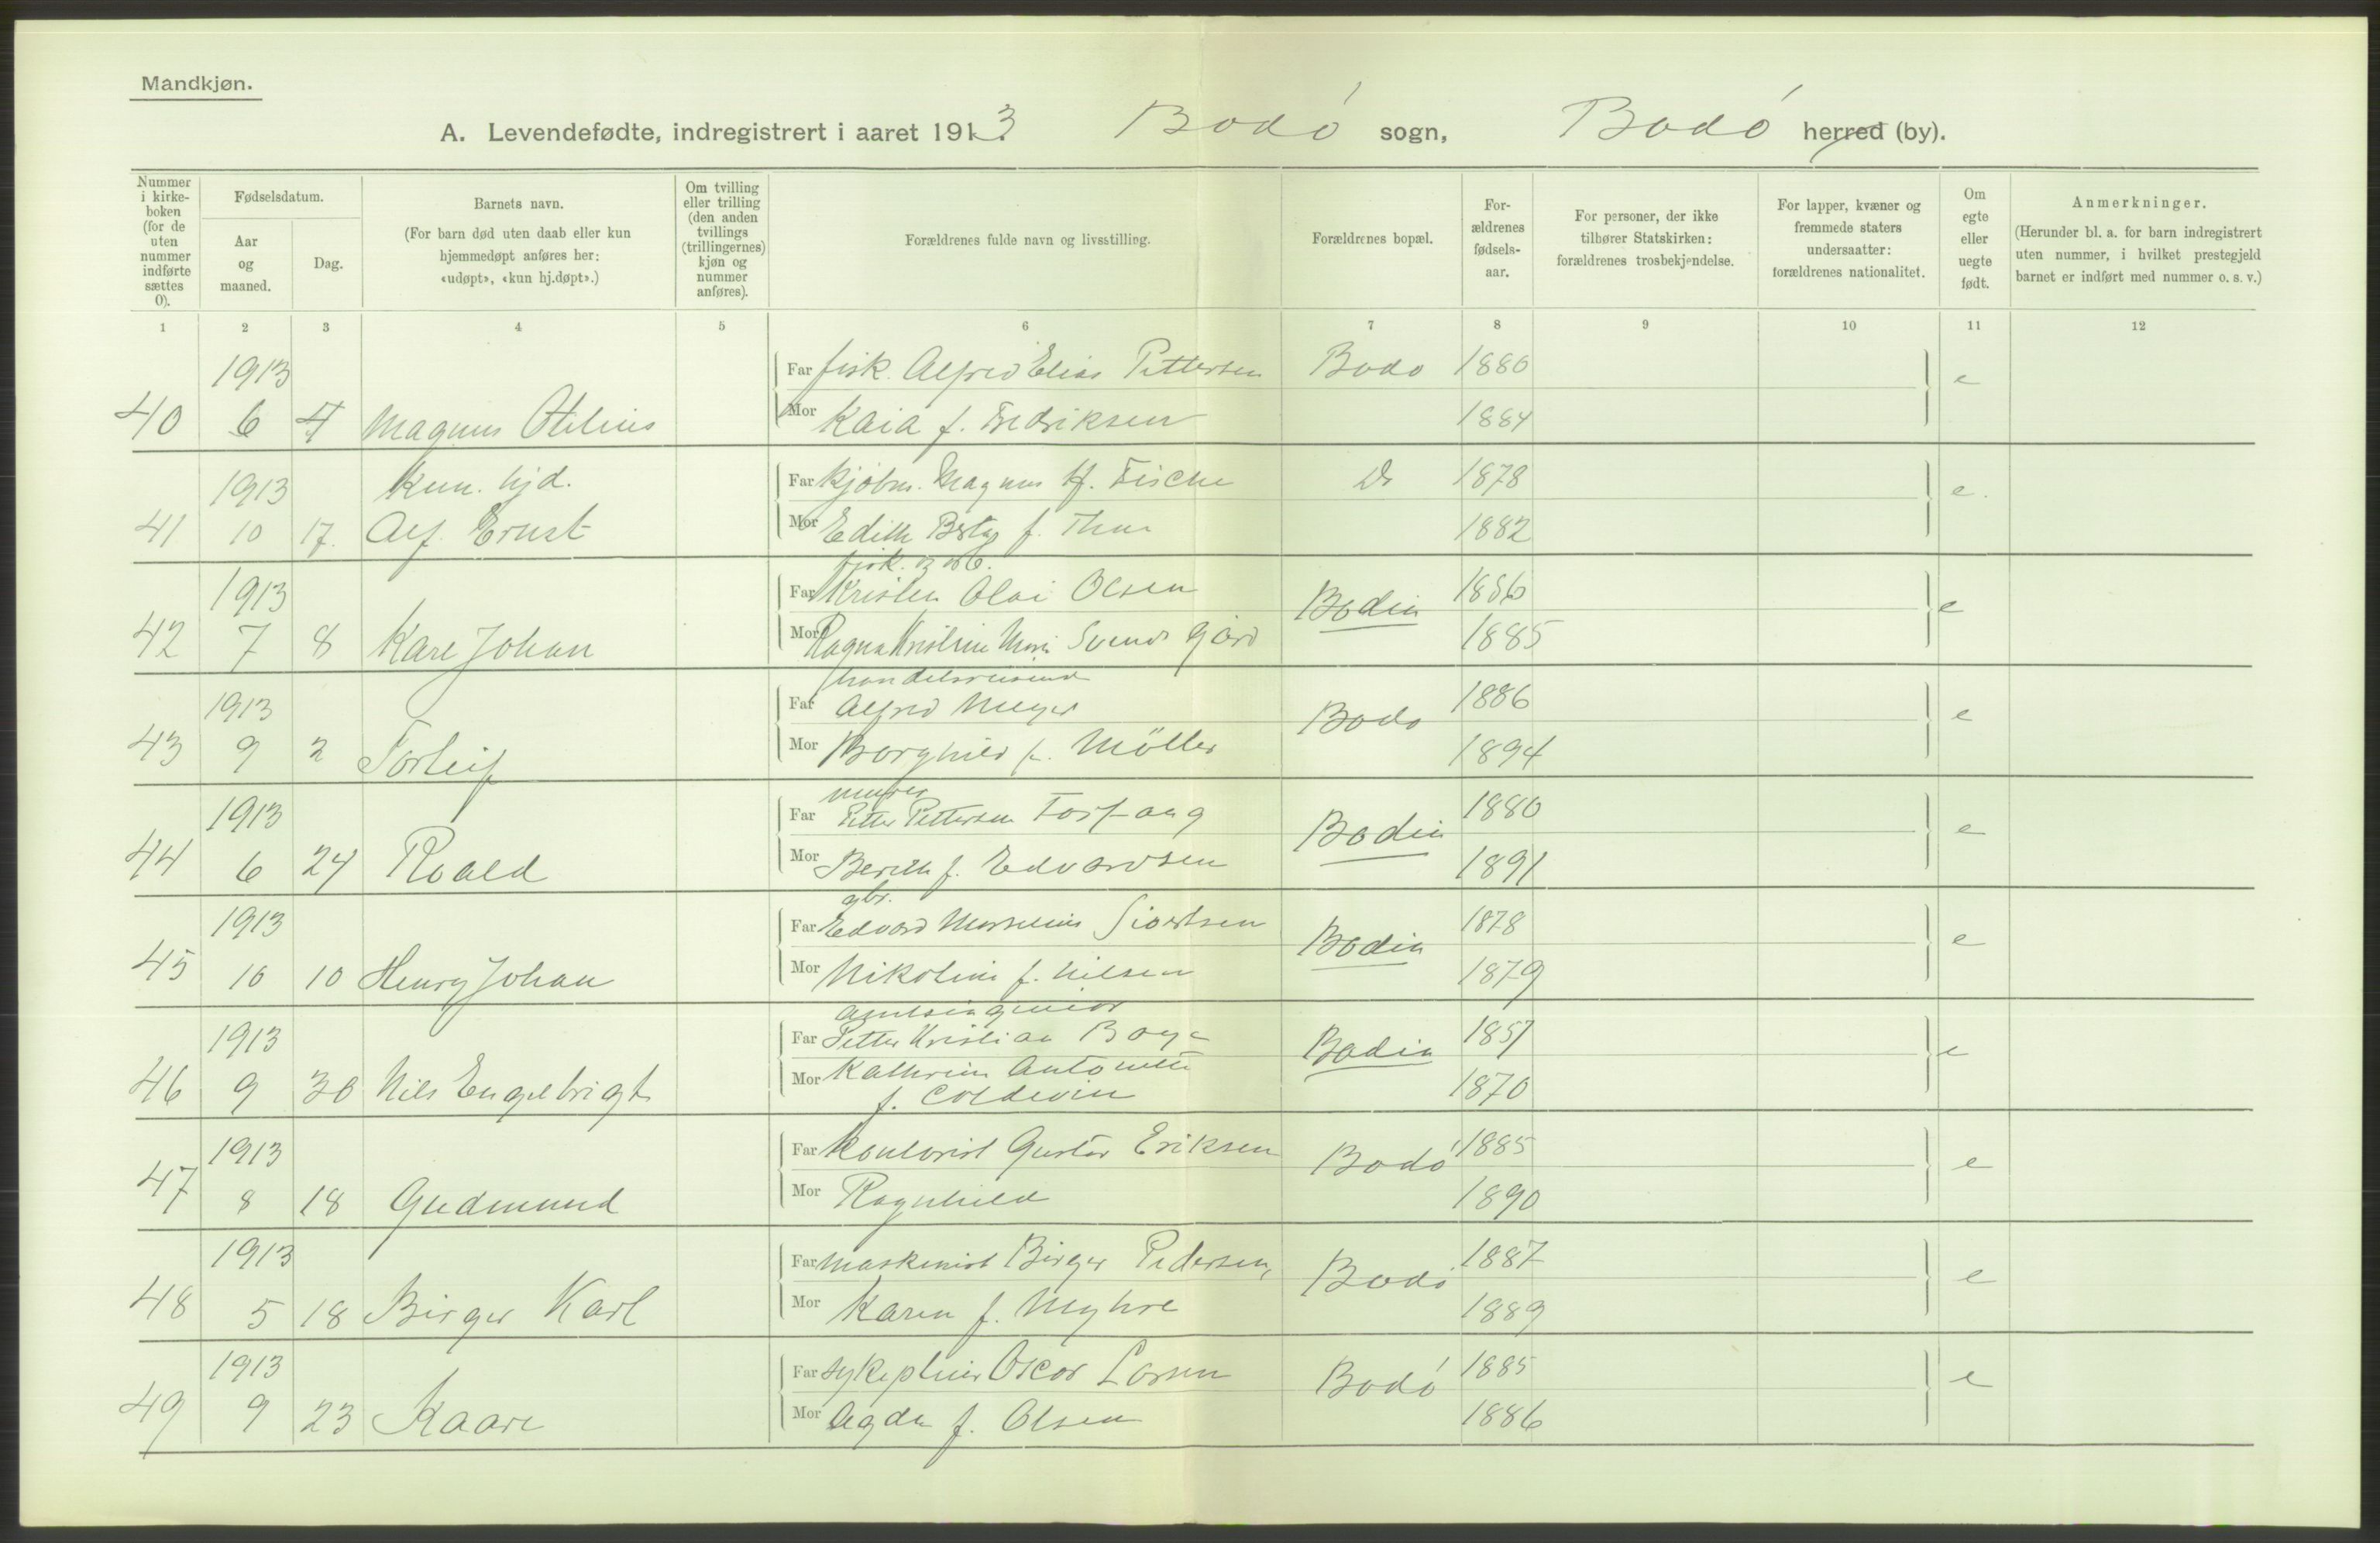 Mandkjøn.
A. Levendefødte, indregistrert i aaret 1913. Bodó sogn, Bodó herred (by).
Nummer i kirke-boken (for de uten nummer indførte sættes 0).
Fødselsdatum.
Aar og maaned.
Dag.
Barnets navn.
(For barn død uten daab eller kun hjemmedøpt anføres her: «udøpt», «kun hj.døpt».)
Om tvilling eller trilling (den anden tvillings (trillingernes) kjøn og nummer anføres).
Forældrenes fulde navn og livsstilling.
Forældrenes bopæl.
For-ældrenes fødsels-aar.
For personer, der ikke tilhører Statskirken: forældrenes trosbekjendelse.
For lapper, kvæner og fremmede staters undersaatter: forældrenes nationalitet.
Om egte eller uegte født.
Anmerkninger.
(Herunder bl. a. for barn indregistrert uten nummer, i hvilket prestegjeld barnet er indført med nummer o. s. v.)
1 2 3 4 5 6 7 8 9 10 11 12
1913 Far fisk. Alfred Elias Pettersen Bodo 1880 e
40 6 4 Magnus Otelius Mor Kaia f. Fredriksen 1884
1913 Kun. hjd. Far Kjøbm. Magnus H. Do 1878 e.
41 10 17. Alf Ernst Mor Edith f. 1882
fisk. og
1913 Far Kristen Olai Olsen Bodin 1886 e
42 7 8 Karl Johan Mor Ragna Kristine Marie 1885
handelsreisend
1913 Far Alfred Meyer Bodo 1886 e
43 9 2 Torleif Mor Borghild f. Möller 1894
murer
1913 Far Petter Pettersen Bodin 1880 e
44 6 24 Roald Mor Berith f. Edvardsen 1891
gbr.
1913 Far Edvard Marselius Sivertsen Bodin 1878 e
45 10 10 Henry Johan Mor Nikoline f. Nilsen 1879
amtsingeniør
1913 Far Petter Kristian Boye Bodin 1857 e
46 9 30 Nils Engelbrigt Mor Kathrine Antonette 1870
f. Coldevin
1913 Far Kontorist Gustav Eriksen Bodó 1885 e
47 8 18 Gudmund Mor Ragnhild 1890
1913 Far Maskinist Birger Pedersen, Bodó 1887 e
48 5 18 Birger Karl Mor Karen f. Myhre 1889
1913 Far sykepleier Oscar Larsen Bodó 1885 e
49 9 23 Kaare Mor Agda f. Olsen 1886